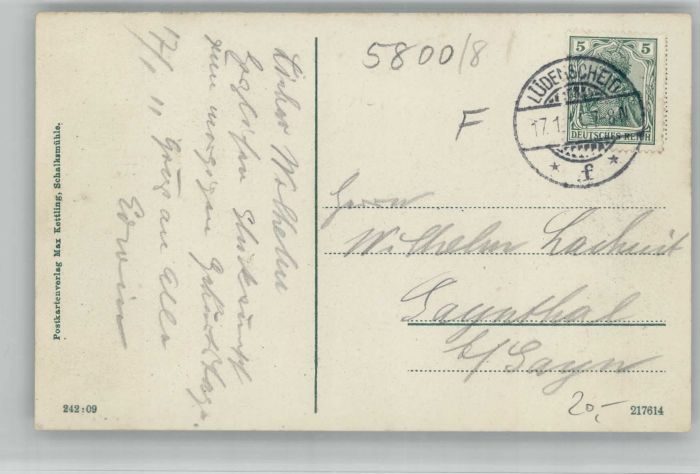 5800/8
F
5 5
DEUTSCHES REICH
LÜDENSCHEID
17.1.
* f *
Lieber Wilhelm
Herzlichen Glückwunsch
zum morgigen Geburtstage.
17/1 11 Gruß an Alle
Edwin
Herrn
Wilhelm
Saynthal
b/Sayn
20,-
Postkartenverlag Max Kettling, Schalksmühle.
242:09
217614